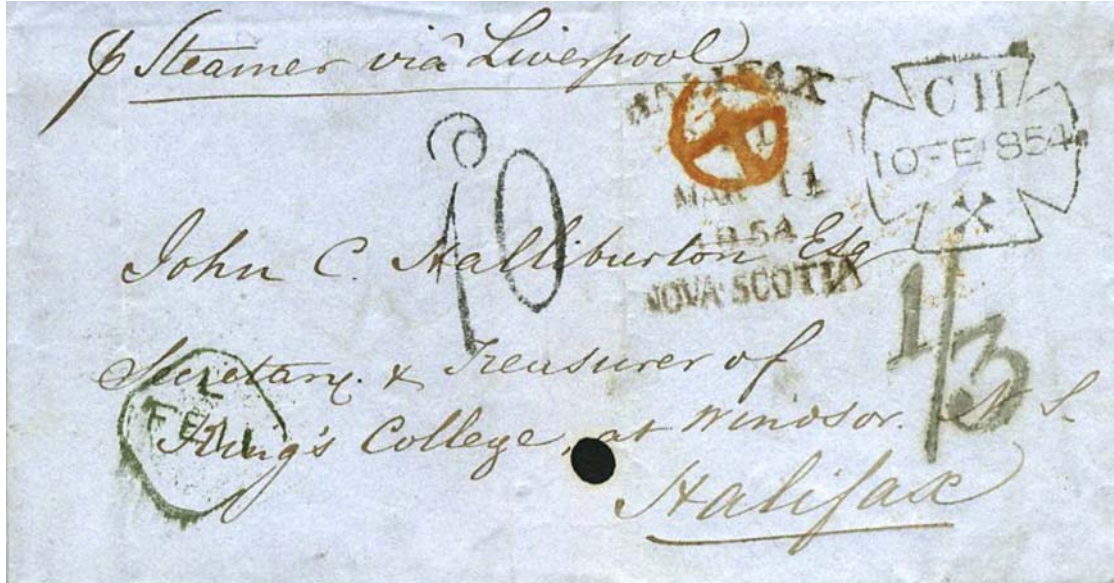 p Steamer viâ Liverpool
HALIFAX
MAR 11
1854
NOVA·SCOTIA
CH
10 FE 1854
X
10
1/3
John C. Halliburton Esq
Secretary & Treasurer of
King's College, at Windsor. N. S.
Halifax
L
FE 11